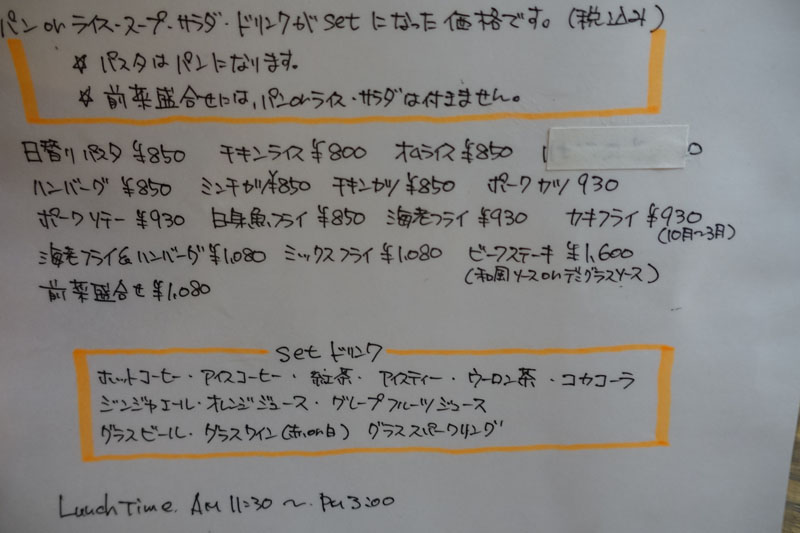 パンorライス・スープ・サラダ・ドリンクがsetになった価格です。(税込み)
☆ パスタはパンになります。
☆ 前菜盛合せには、パンorライス・サラダは付きません。
日替りパスタ ¥850 チキンライス ¥800 オムライス ¥850 0
ハンバーグ ¥850 ミンチカツ ¥850 チキンカツ ¥850 ポークカツ 930
ポークソテー ¥930 白身魚フライ ¥850 海老フライ ¥930 カキフライ ¥930
(10月〜3月)
海老フライ&ハンバーグ ¥1,080 ミックスフライ ¥1,080 ビーフステーキ ¥1,600
(和風ソースorデミグラスソース)
前菜盛合せ ¥1,080
setドリンク
ホットコーヒー・アイスコーヒー・紅茶・アイスティー・ウーロン茶・コカコーラ
ジンジャエール・オレンジジュース・グレープフルーツジュース
グラスビール・グラスワイン(赤or白) グラススパークリング
Lunch Time. AM 11:30 〜 PM 3:00